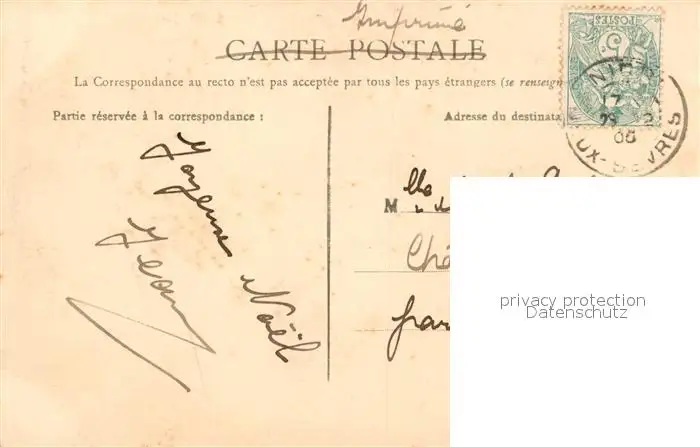 Imprimé
CARTE POSTALE
La Correspondance au recto n'est pas acceptée par tous les pays étrangers (se renseign
Partie réservée à la correspondance :
Adresse du destinata
POSTES
5
NIORT
17
29 12
05
UX-SEVRES
Joyeux
Noël
Jean
M
Châ
par
privacy protection
Datenschutz